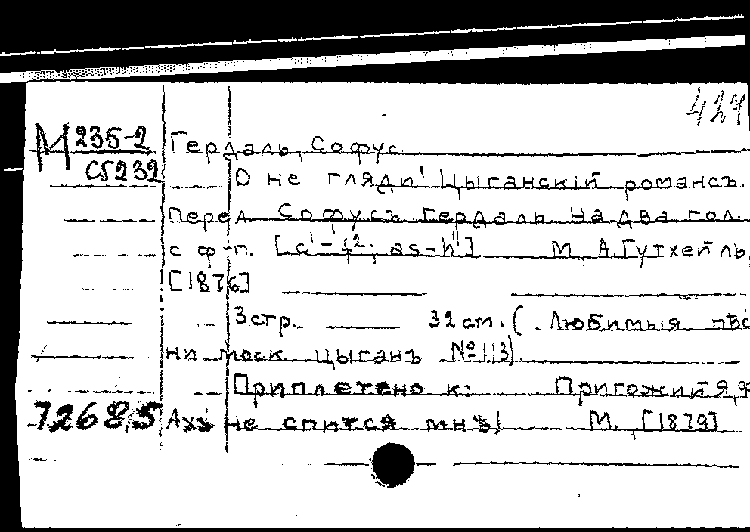 424
М 235-2
Сб232
Гердаль, Софус.
О не гляди! Цыганскiй романсъ.
Перед. Софусъ Гердаль. На два гол.
с ф-п. М. А. Гутхейль,
[1876]
3 стр. 32 см. (Любимыя пѣс
ни моск. цыганъ №113).
Приплетено к: Пригожий Я. Я
72685 Ахъ не спится мнѣ! М. [1879]